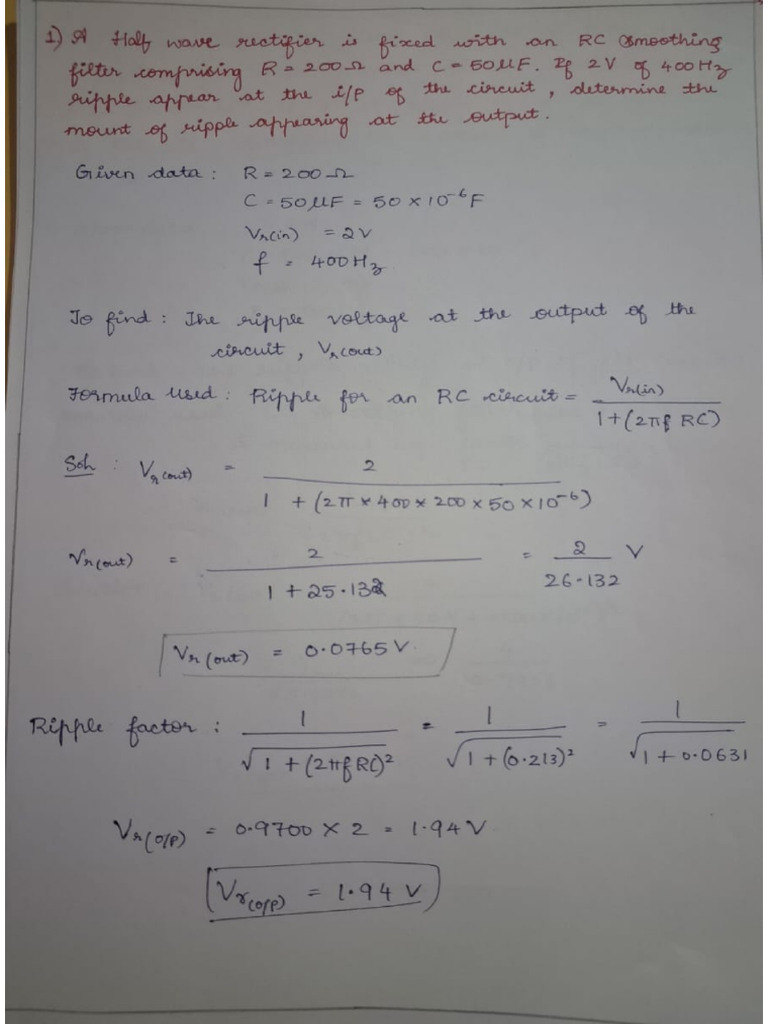 1) A Half wave rectifier is fixed with an RC smoothing
filter comprising R = 200 Ω and C = 50 μF. If 2 V of 400 Hz
ripple appear at the i/p of the circuit, determine the
mount of ripple appearing at the output.
Given data : R = 200 Ω
C = 50 μF = 50 × 10⁻⁶ F
Vr(in) = 2V
f = 400 Hz
To find : The ripple voltage at the output of the
circuit, Vr(out)
Formula used : Ripple for an RC circuit = Vr(in) / 1 + (2πf RC)
Soln : Vr(out) = 2 / 1 + (2π × 400 × 200 × 50 × 10⁻⁶)
Vr(out) = 2 / 1 + 25.132 = 2 / 26.132 V
Vr(out) = 0.0765 V
Ripple factor : 1 / √1 + (2πf RC)² = 1 / √1 + (0.213)² = 1 / √1 + 0.0631
Vr(o/p) = 0.9700 × 2 = 1.94 V
Vr(o/p) = 1.94 V